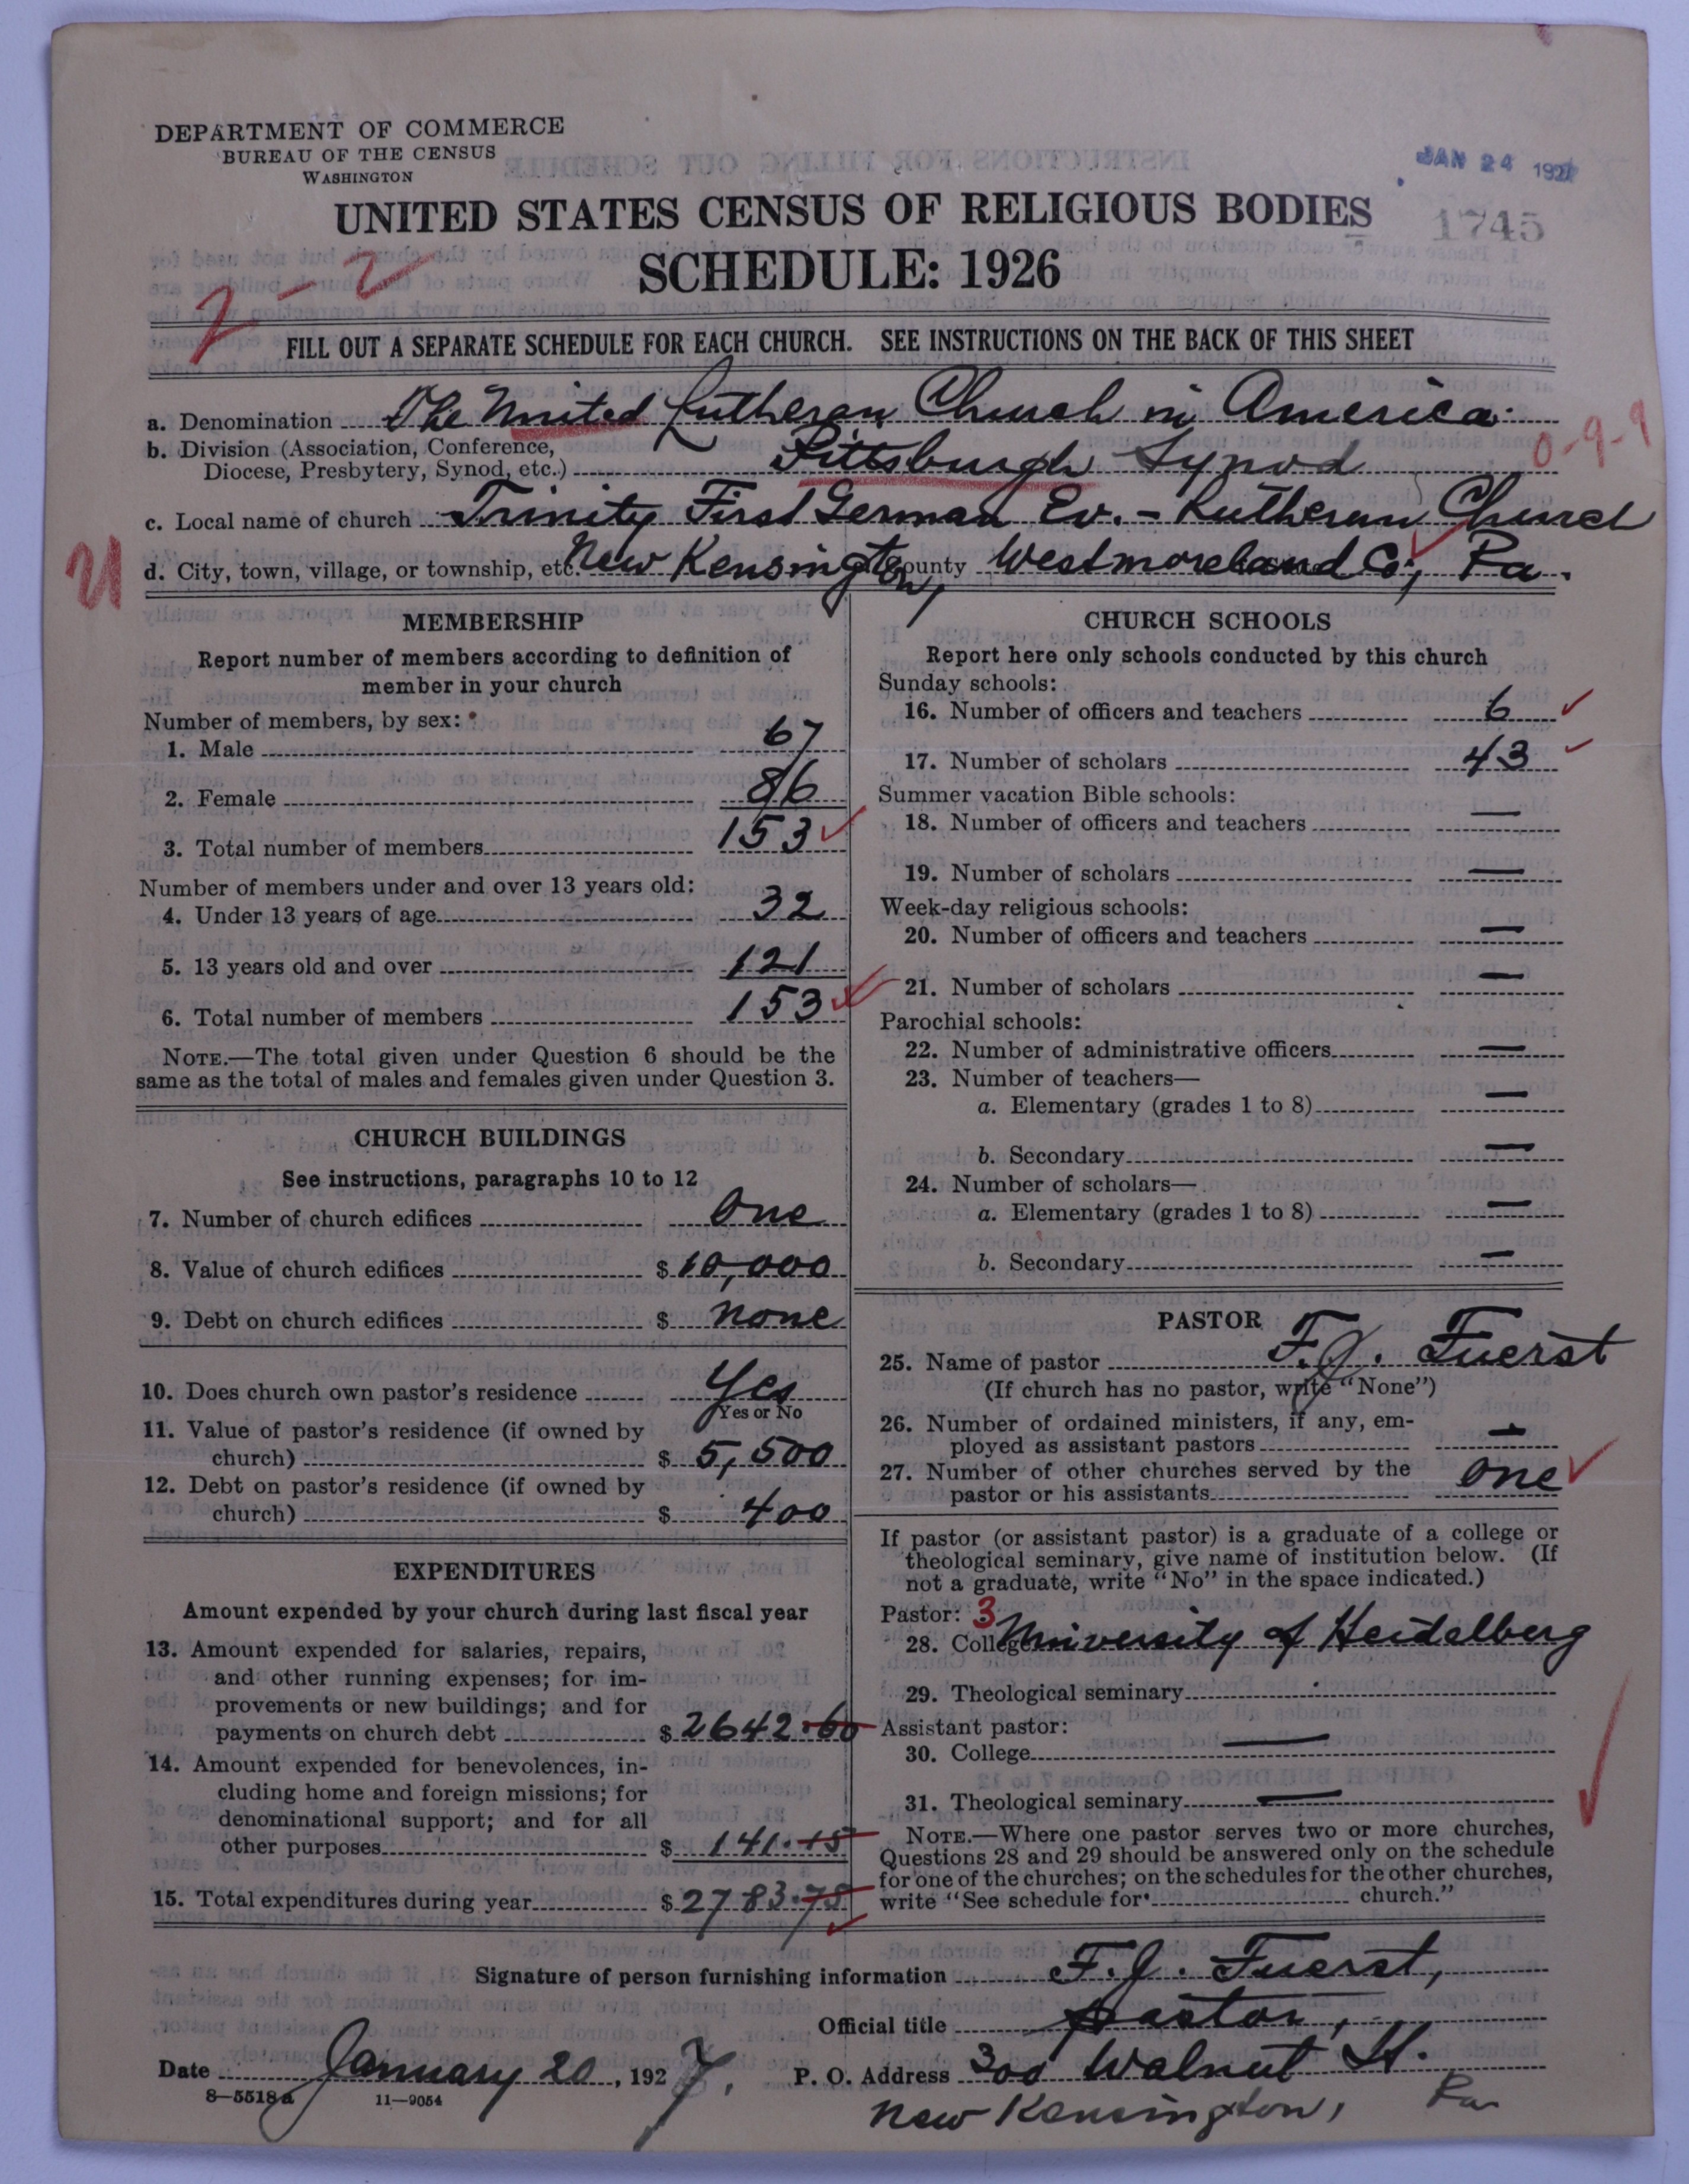 DEPARTMENT OF COMMERCE
BUREAU OF THE CENSUS
WASHINGTON
JAN 24 1927
UNITED STATES CENSUS OF RELIGIOUS BODIES
1745
SCHEDULE: 1926
2-2
FILL OUT A SEPARATE SCHEDULE FOR EACH CHURCH. SEE INSTRUCTIONS ON THE BACK OF THIS SHEET
a. Denomination The United Lutheran Church in America.
b. Division (Association, Conference,
Diocese, Presbytery, Synod, etc.) Pittsburgh Synod 0-9-9
c. Local name of church Trinity First German Ev.-Lutheran Church
21
d. City, town, village, or township, etc. New Kensington, County Westmoreland Co., Pa.
MEMBERSHIP
Report number of members according to definition of
member in your church
Number of members, by sex:
1. Male 67
2. Female 86
3. Total number of members 153
Number of members under and over 13 years old:
4. Under 13 years of age 32
5. 13 years old and over 121
6. Total number of members 153
NOTE.—The total given under Question 6 should be the
same as the total of males and females given under Question 3.
CHURCH BUILDINGS
See instructions, paragraphs 10 to 12
7. Number of church edifices One
8. Value of church edifices $ 10,000
9. Debt on church edifices $ none
10. Does church own pastor's residence Yes
Yes or No
11. Value of pastor's residence (if owned by
church) $ 5,500
12. Debt on pastor's residence (if owned by
church) $ 400
EXPENDITURES
Amount expended by your church during last fiscal year
13. Amount expended for salaries, repairs,
and other running expenses; for im-
provements or new buildings; and for
payments on church debt $ 2642.60
14. Amount expended for benevolences, in-
cluding home and foreign missions; for
denominational support; and for all
other purposes $ 141.15
15. Total expenditures during year $ 2783.75
CHURCH SCHOOLS
Report here only schools conducted by this church
Sunday schools:
16. Number of officers and teachers 6
17. Number of scholars 43
Summer vacation Bible schools:
18. Number of officers and teachers —
19. Number of scholars —
Week-day religious schools:
20. Number of officers and teachers —
21. Number of scholars —
Parochial schools:
22. Number of administrative officers —
23. Number of teachers—
a. Elementary (grades 1 to 8) —
b. Secondary —
24. Number of scholars—
a. Elementary (grades 1 to 8) —
b. Secondary —
PASTOR
25. Name of pastor F. J. Fuerst
(If church has no pastor, write "None")
26. Number of ordained ministers, if any, em-
ployed as assistant pastors —
27. Number of other churches served by the
pastor or his assistants one
If pastor (or assistant pastor) is a graduate of a college or
theological seminary, give name of institution below. (If
not a graduate, write "No" in the space indicated.)
Pastor: 3
28. College University of Heidelberg
29. Theological seminary
Assistant pastor:
30. College —
31. Theological seminary —
NOTE.—Where one pastor serves two or more churches,
Questions 28 and 29 should be answered only on the schedule
for one of the churches; on the schedules for the other churches,
write "See schedule for church."
Signature of person furnishing information F. J. Fuerst,
Official title pastor,
Date January 20, 1927. P. O. Address 300 Walnut St.
8-5518a 11-9054 New Kensington, Pa